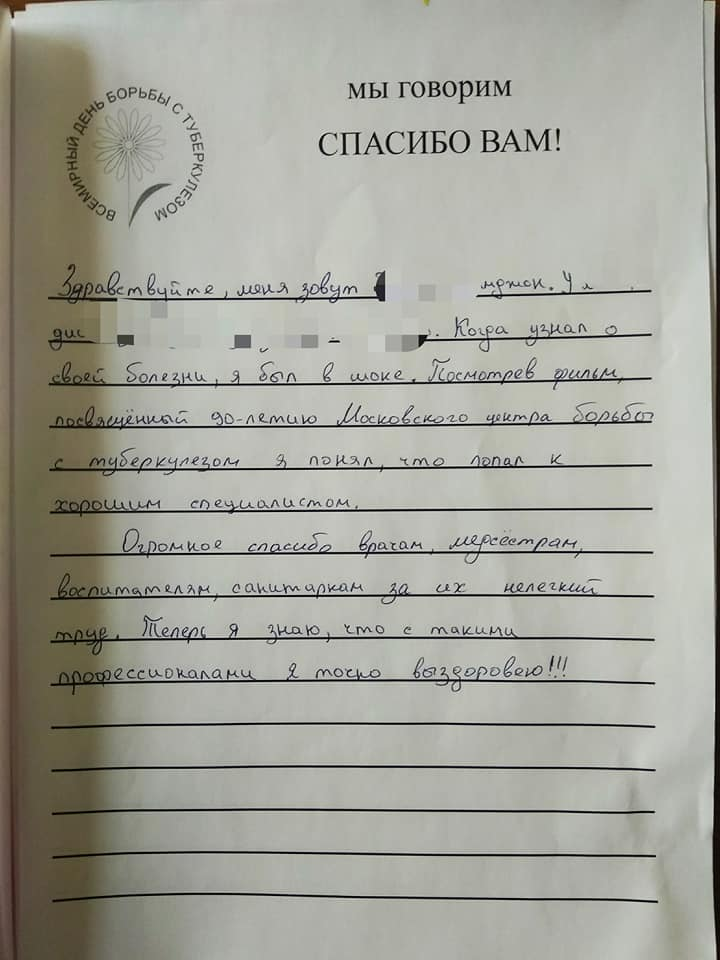 ВСЕМИРНЫЙ ДЕНЬ БОРЬБЫ С ТУБЕРКУЛЕЗОМ
мы говорим
СПАСИБО ВАМ!
Здравствуйте, меня зовут мджон. У
дис . Когда узнал о
своей болезни, я был в шоке. Посмотрев фильм,
посвящённый 90-летию Московского центра борьбы
с туберкулезом я понял, что попал к
хорошим специалистом.
Огромное спасибо врачам, медсёстрам,
воспитателям, санитаркам за их нелегкий
труд. Теперь я знаю, что с такими
профессионалами я точно выздоровею!!!